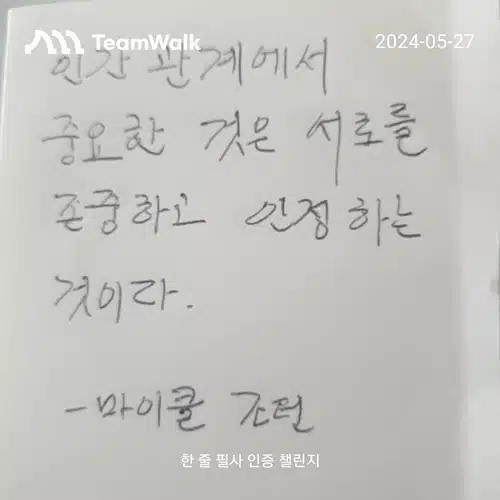 TeamWalk
2024-05-27
인간 관계에서
중요한 것은 서로를
존중하고 인정하는
것이다.
-마이클 조턴
한 줄 필사 인증 챌린지